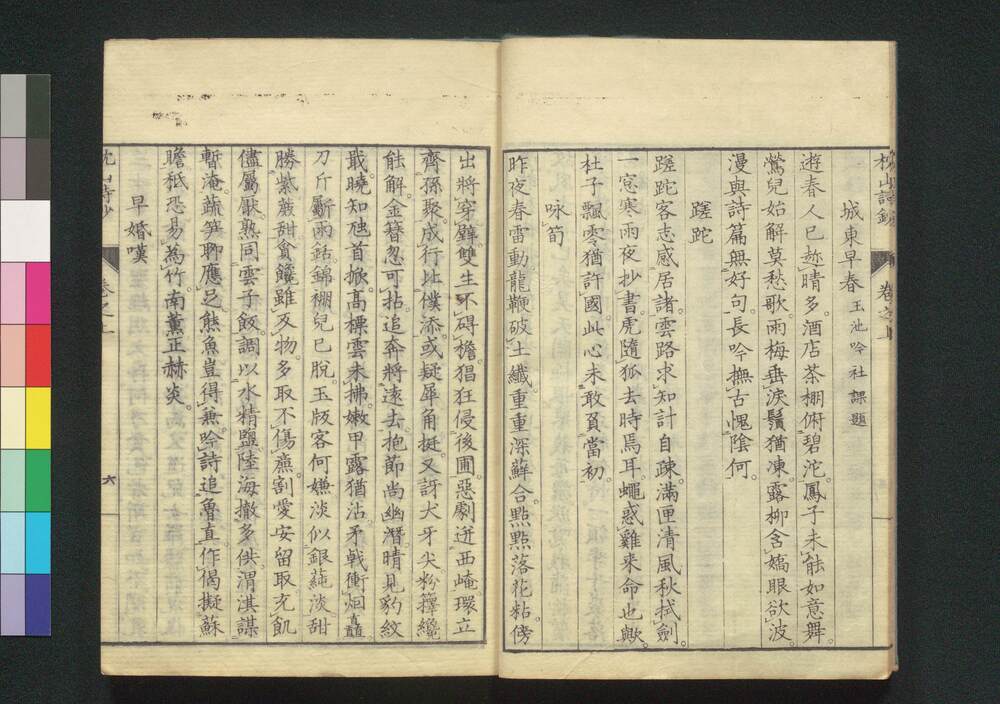 城東早春 玉池吟社課題
遊春人已趂晴多酒店茶棚俯碧沱鳳子未能如意舞
鶯兒始解莫愁歌雨梅垂淚鬚猶凍露柳含嬌眼欲波
漫與詩篇無好句長吟撫古愧陰何
蹉跎
蹉跎客志感居諸雲路求知計自疎滿匣清風秋拭劍
一窓寒雨夜抄書虎隨狐去時焉耳蠅惑雞來命也歟
杜子飄零猶許國此心未敢負當初
咏筍
昨夜春雷動龍鞭破土纖重重深蘚合點點落花粘傍
出將穿壁雙生不碍檐猖狂侵後圃惡劇迸西崦環立
齊孫聚成行比僕添或疑犀角挺又訝犬牙尖粉籜纔
能解金簪忽可拈追奔將遠去抱節尚幽潛晴見豹紋
戢曉知虺首掀高標雲未拂嫩甲露猶沾矛戟衝烟矗
刀斤斸雨銛錦棚兒已脫玉版客何嫌淡似銀蓴淡甜
勝紫蕨甜貪饞雖及物多取不傷廉割愛安留取充飢
儘屬厭熟同雲子飯調以水精鹽陸海撤多供渭淇謀
暫淹蔬笋聊應足熊魚豈得兼吟詩追魯直作偈擬蘇
瞻秪恐易為竹南薰正赫炎
早婚嘆
卷之上
六